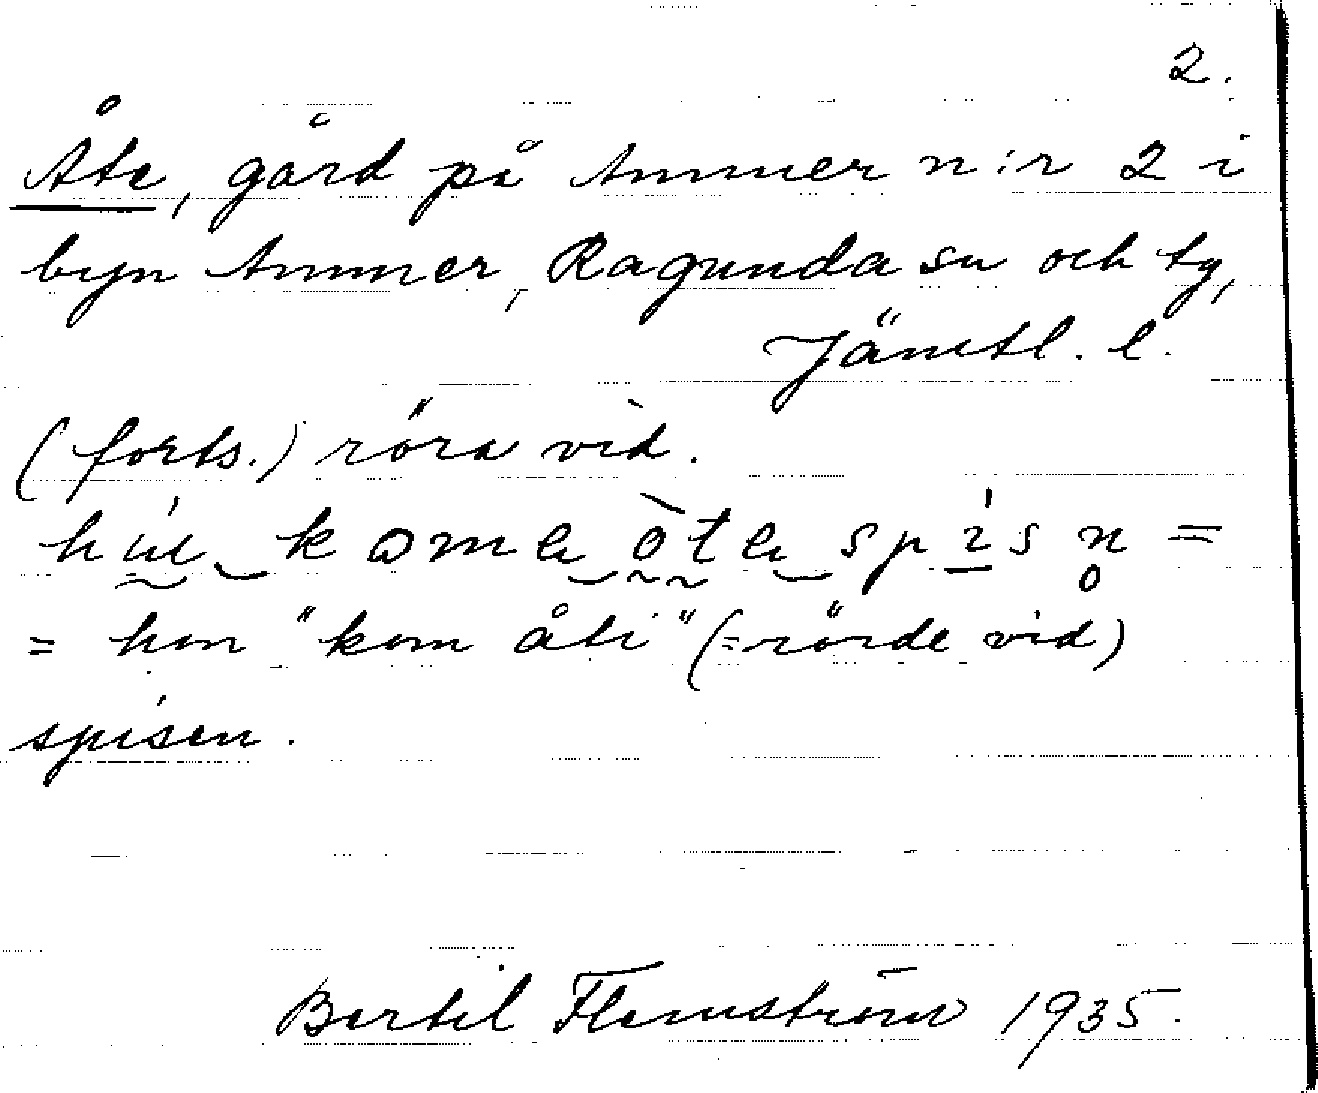 2.
Åte, gård på Ammer n:r 2 i
byn Ammer, Ragunda sn och tg,
Jämtl. l.
(forts.) röra vid.
spisn =
= hon "kom åti" (=rörde vid)
spisen.
Bertil Flemström 1935.